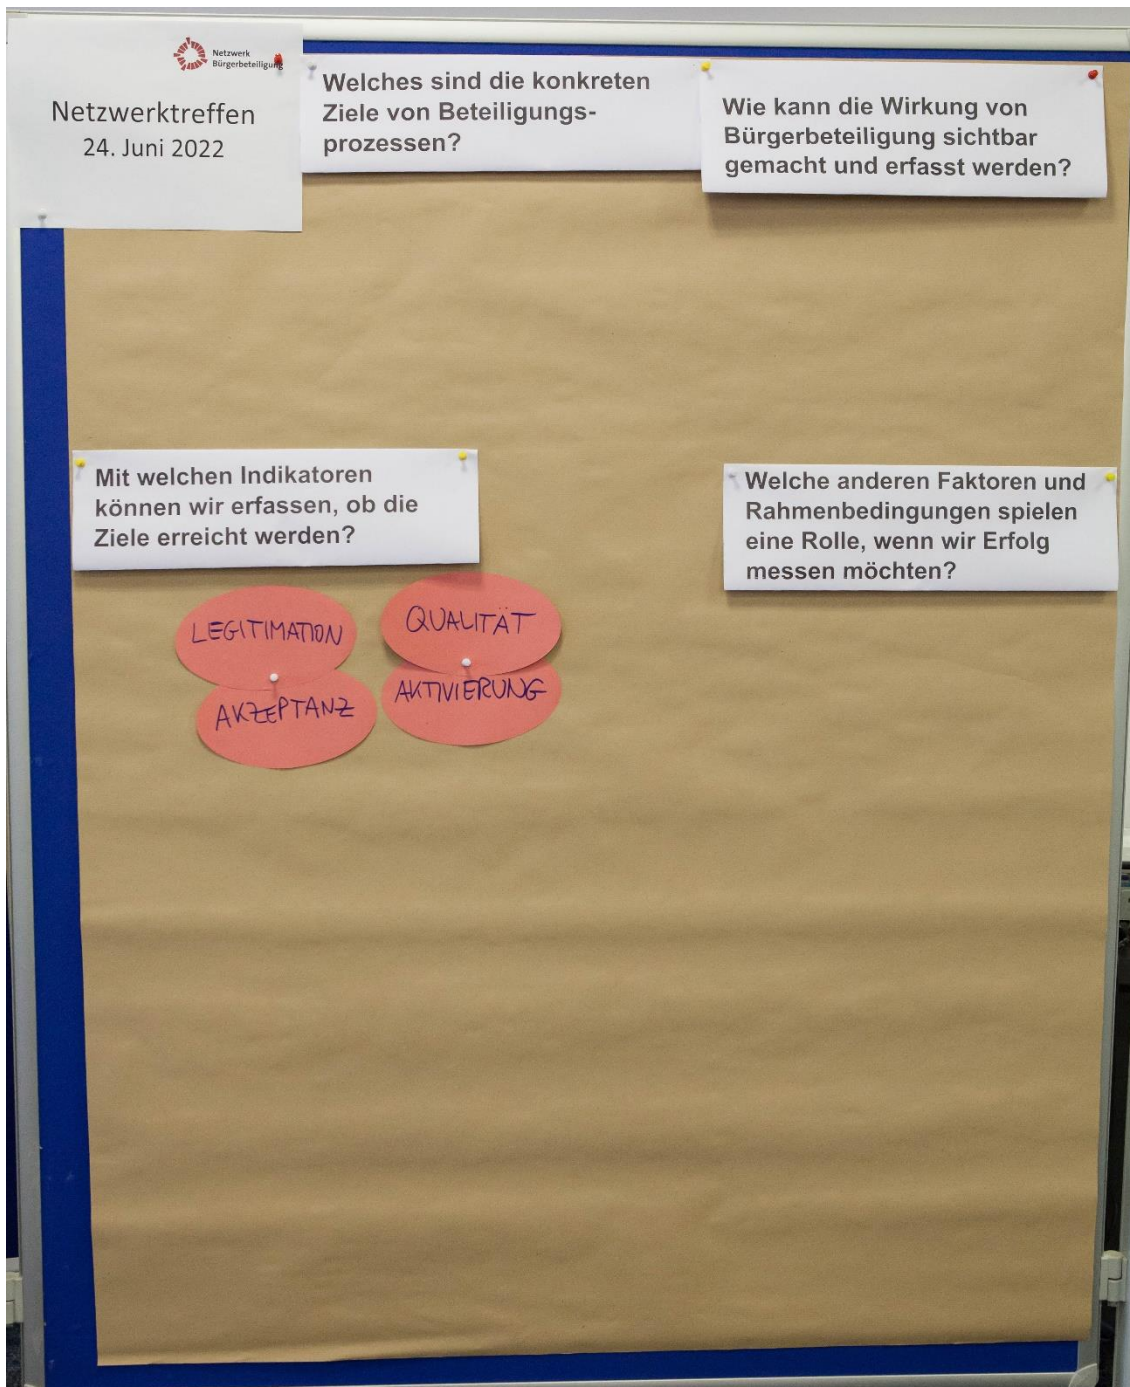 Netzwerk
Bürgerbeteiligung
Netzwerktreffen
24. Juni 2022
Welches sind die konkreten
Ziele von Beteiligungs-
prozessen?
Wie kann die Wirkung von
Bürgerbeteiligung sichtbar
gemacht und erfasst werden?
Mit welchen Indikatoren
können wir erfassen, ob die
Ziele erreicht werden?
Welche anderen Faktoren und
Rahmenbedingungen spielen
eine Rolle, wenn wir Erfolg
messen möchten?
LEGITIMATION
AKZEPTANZ
QUALITÄT
AKTIVIERUNG